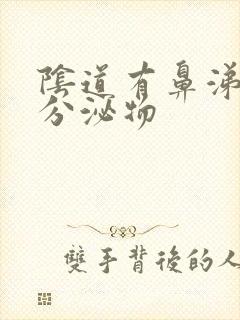 陰道有鼻涕
分泌物
雙手背後的人